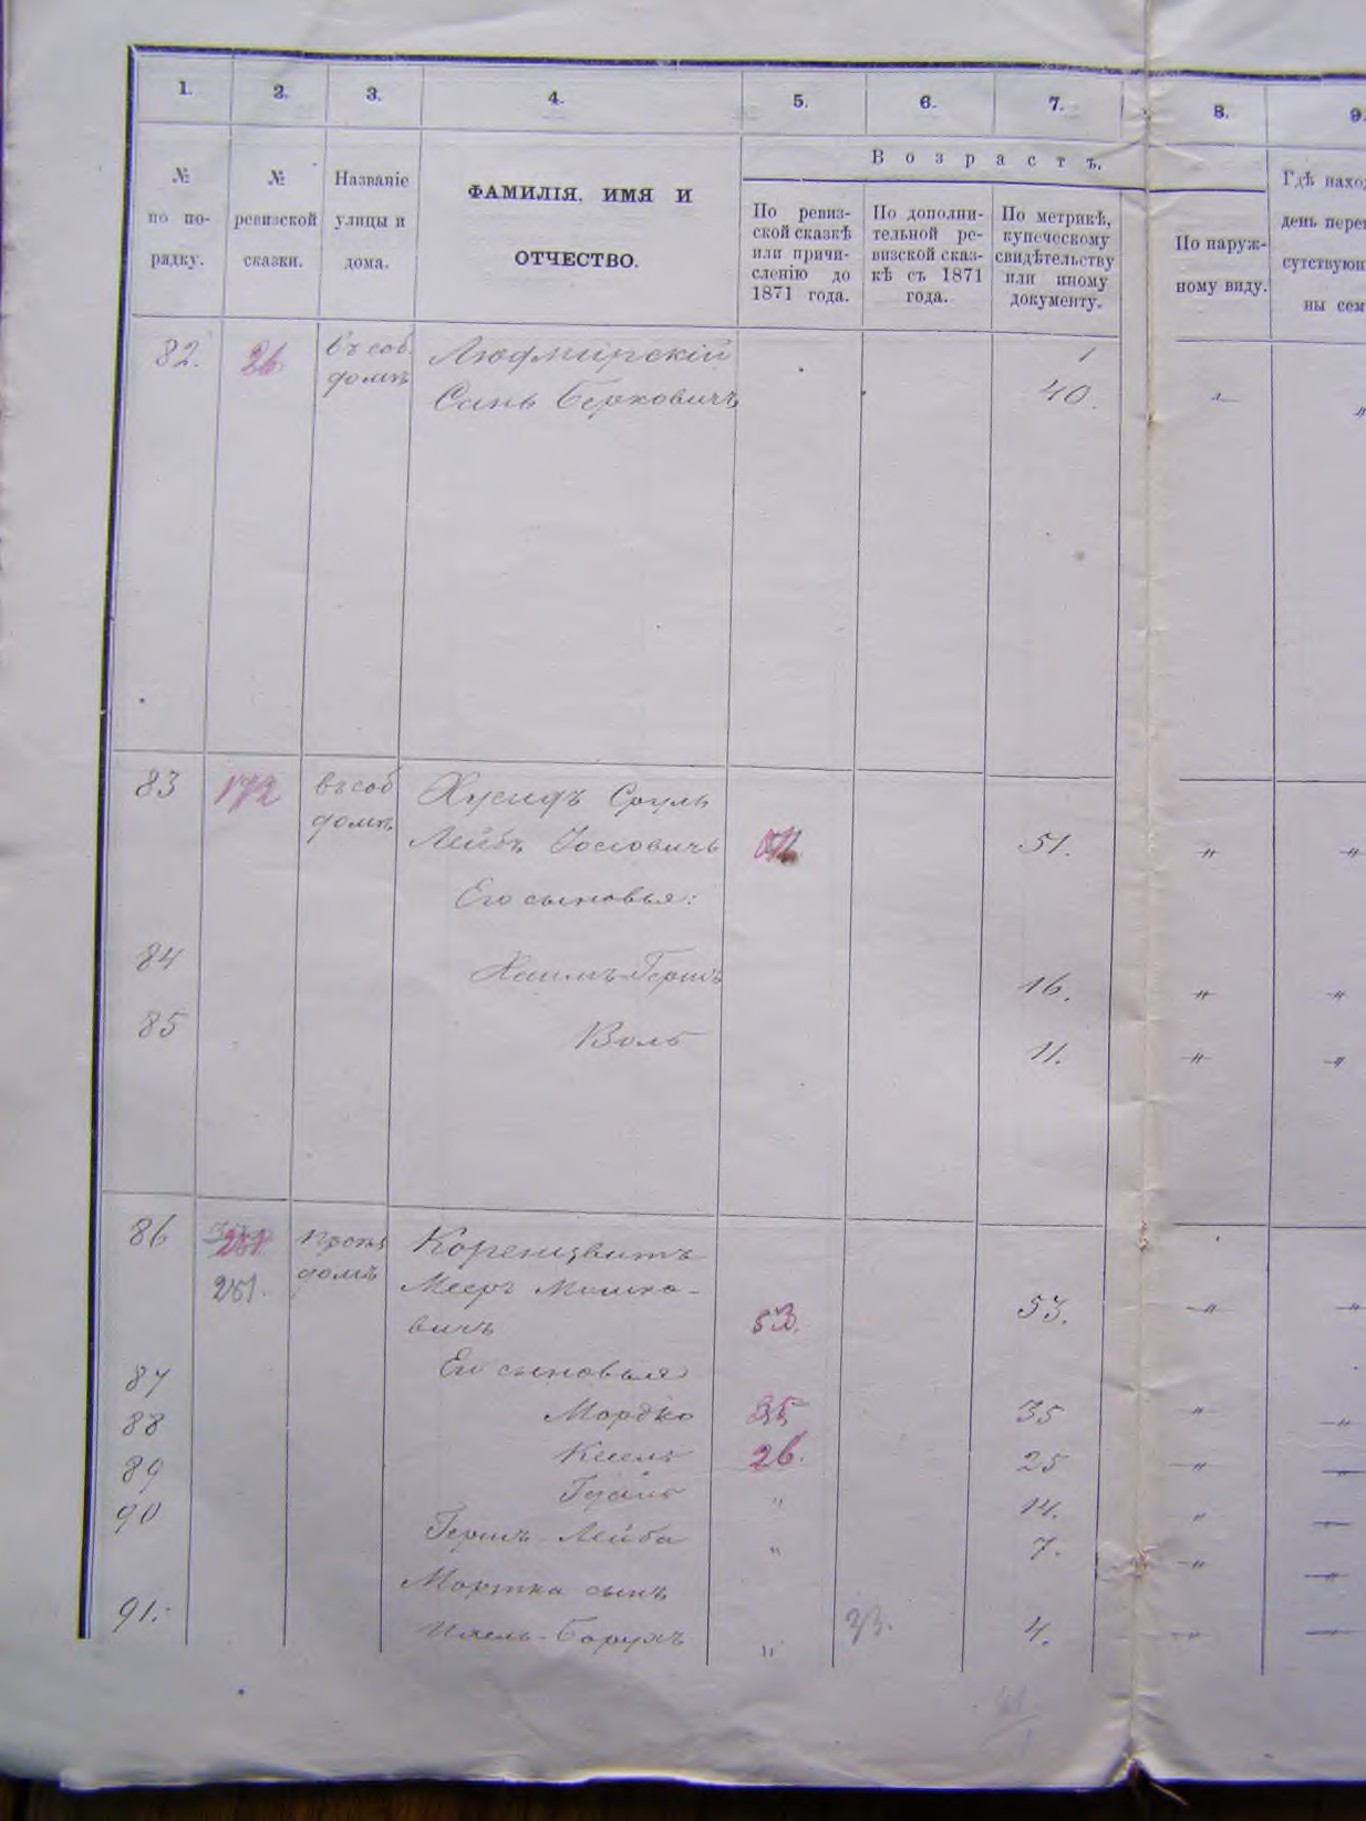 1. 2. 3. 4. 5. 6. 7. 8. 9.
Возрастъ.
№ по по-рядку.
№ ревизской сказки.
Названіе улицы и дома.
ФАМИЛІЯ, ИМЯ И
ОТЧЕСТВО.
По ревиз-
ской сказкѣ
или причи-
сленію до
1871 года.
По дополни-
тельной ре-
визской сказ-
кѣ съ 1871
года.
По метрикѣ,
купеческому
свидѣтельству
или иному
документу.
По наруж-
ному виду.
Гдѣ наход
день пере
сутствую
ны сем
82. 26 въ соб. Людмирскій 1
домѣ Сань Берковичъ 40. "
83 172 въ соб Хусидъ Сруль
домѣ Лейбъ Іосіовичъ 51. " "
Его сыновья:
84 Хаимъ-Гершъ 16. " "
85 Воль 11. " "
86 251 домѣ Коренцвитъ
251. Мееръ Мошко-
вичъ 53. 53. " "
Его сыновья
87 Мордко 35 35 " "
88 26. 25 " "
89 " 14. "
90 Гершъ-Лейба " 7. "
Мортка сынъ
91. -Борухъ " 23. 4. "